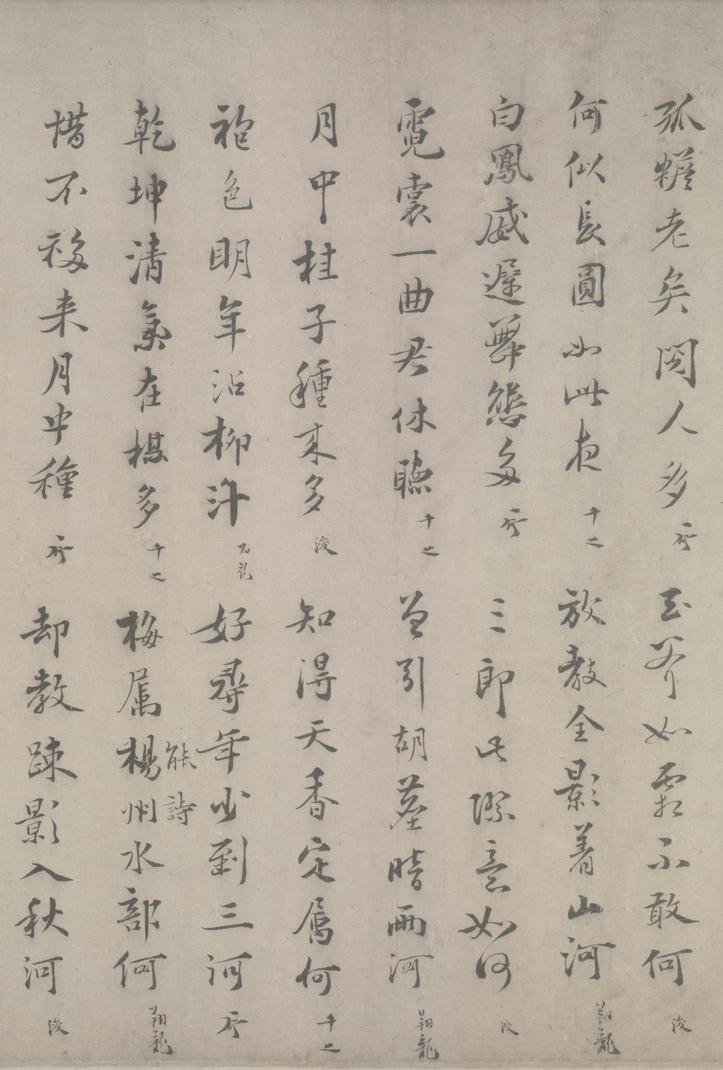 孤蟾老矣閱人多 玉斧如霜不敢何 浚
何似長圓如此夜 十之 放教全影着山河 翔龍
白鳳威遲舞態多 三郎此際意如何 浚
霓裳一曲君休聽 十之 曾引胡塵暗兩河 翔龍
月中桂子種來多 浚 知得天香定屬何 十之
袍色明年沾柳汁 好尋年少到三河
乾坤清氣在楳多 十之 梅屬楊州水部何 翔龍
能詩
惜不移来月中種 却教疎影入秋河 浚